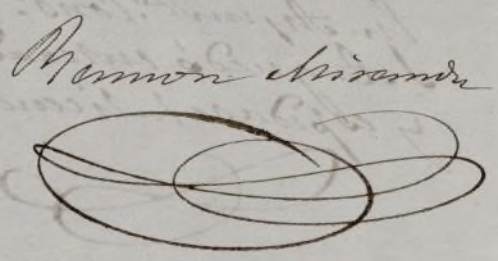 Ramon Miranda